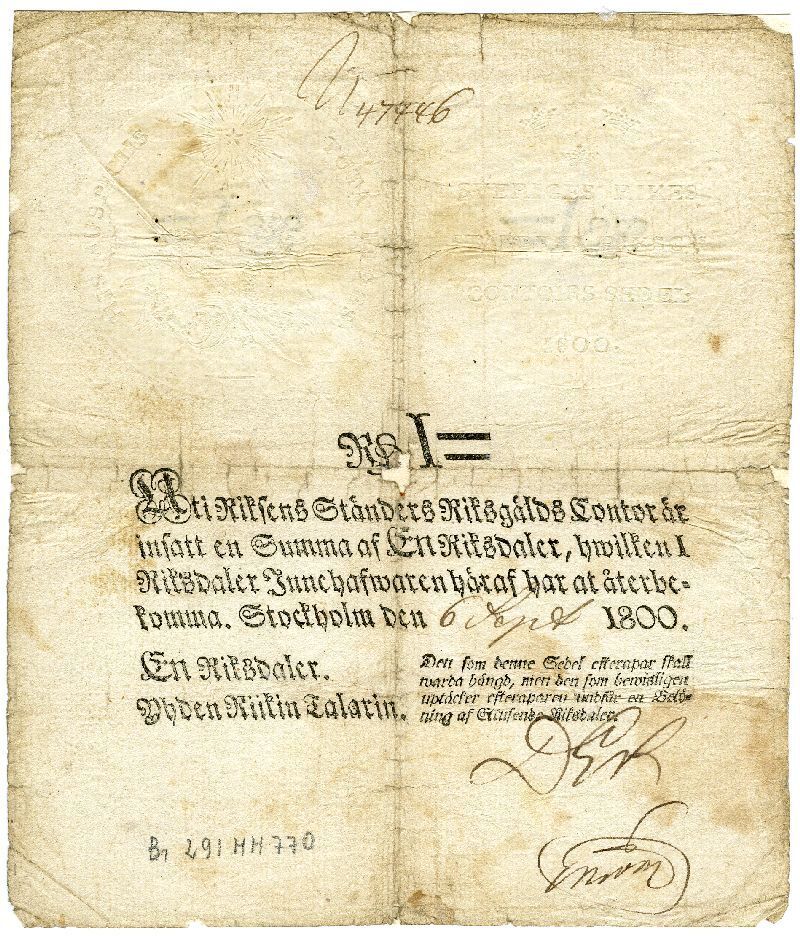 N 47446
SVERIGES RIKES
CONTOIRS SEDEL
1800.
Rdr I=
Uti Riksens Ständers Riksgälds Contor är
insatt en Summa af En Riksdaler, hwilken 1
Riksdaler Innehafwaren häraf har at återbe-
komma. Stockholm den 6 Sept 1800.
En Riksdaler.
Yhden Riikin Talarin.
Den som denne Sedel efterapar skall
warda hängd, men den som bewisligen
uptäcker efteraparen undfår en Belö-
ning af Ettusende Riksdaler.
B, 291 HH 770